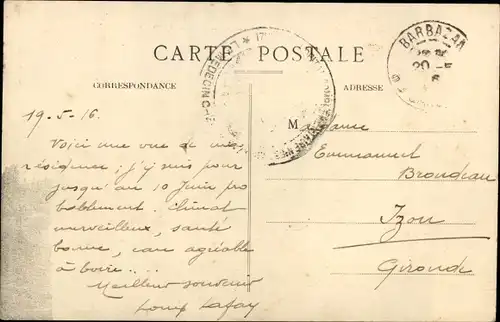 CARTE POSTALE
CORRESPONDANCE
ADRESSE
BARBAZAN
20 - 5
LE MEDECIN CHE
19-5-16.
Voici une vue de ma
résidence; j'y suis pour
jusqu'au 10 Juin pro
bablement. Climat
merveilleux, santé
bonne, eau agréable
à boire....
Meilleur souvenir
Louis Lafay
Madame
Emmanuel
Brondeau
Izon
Gironde